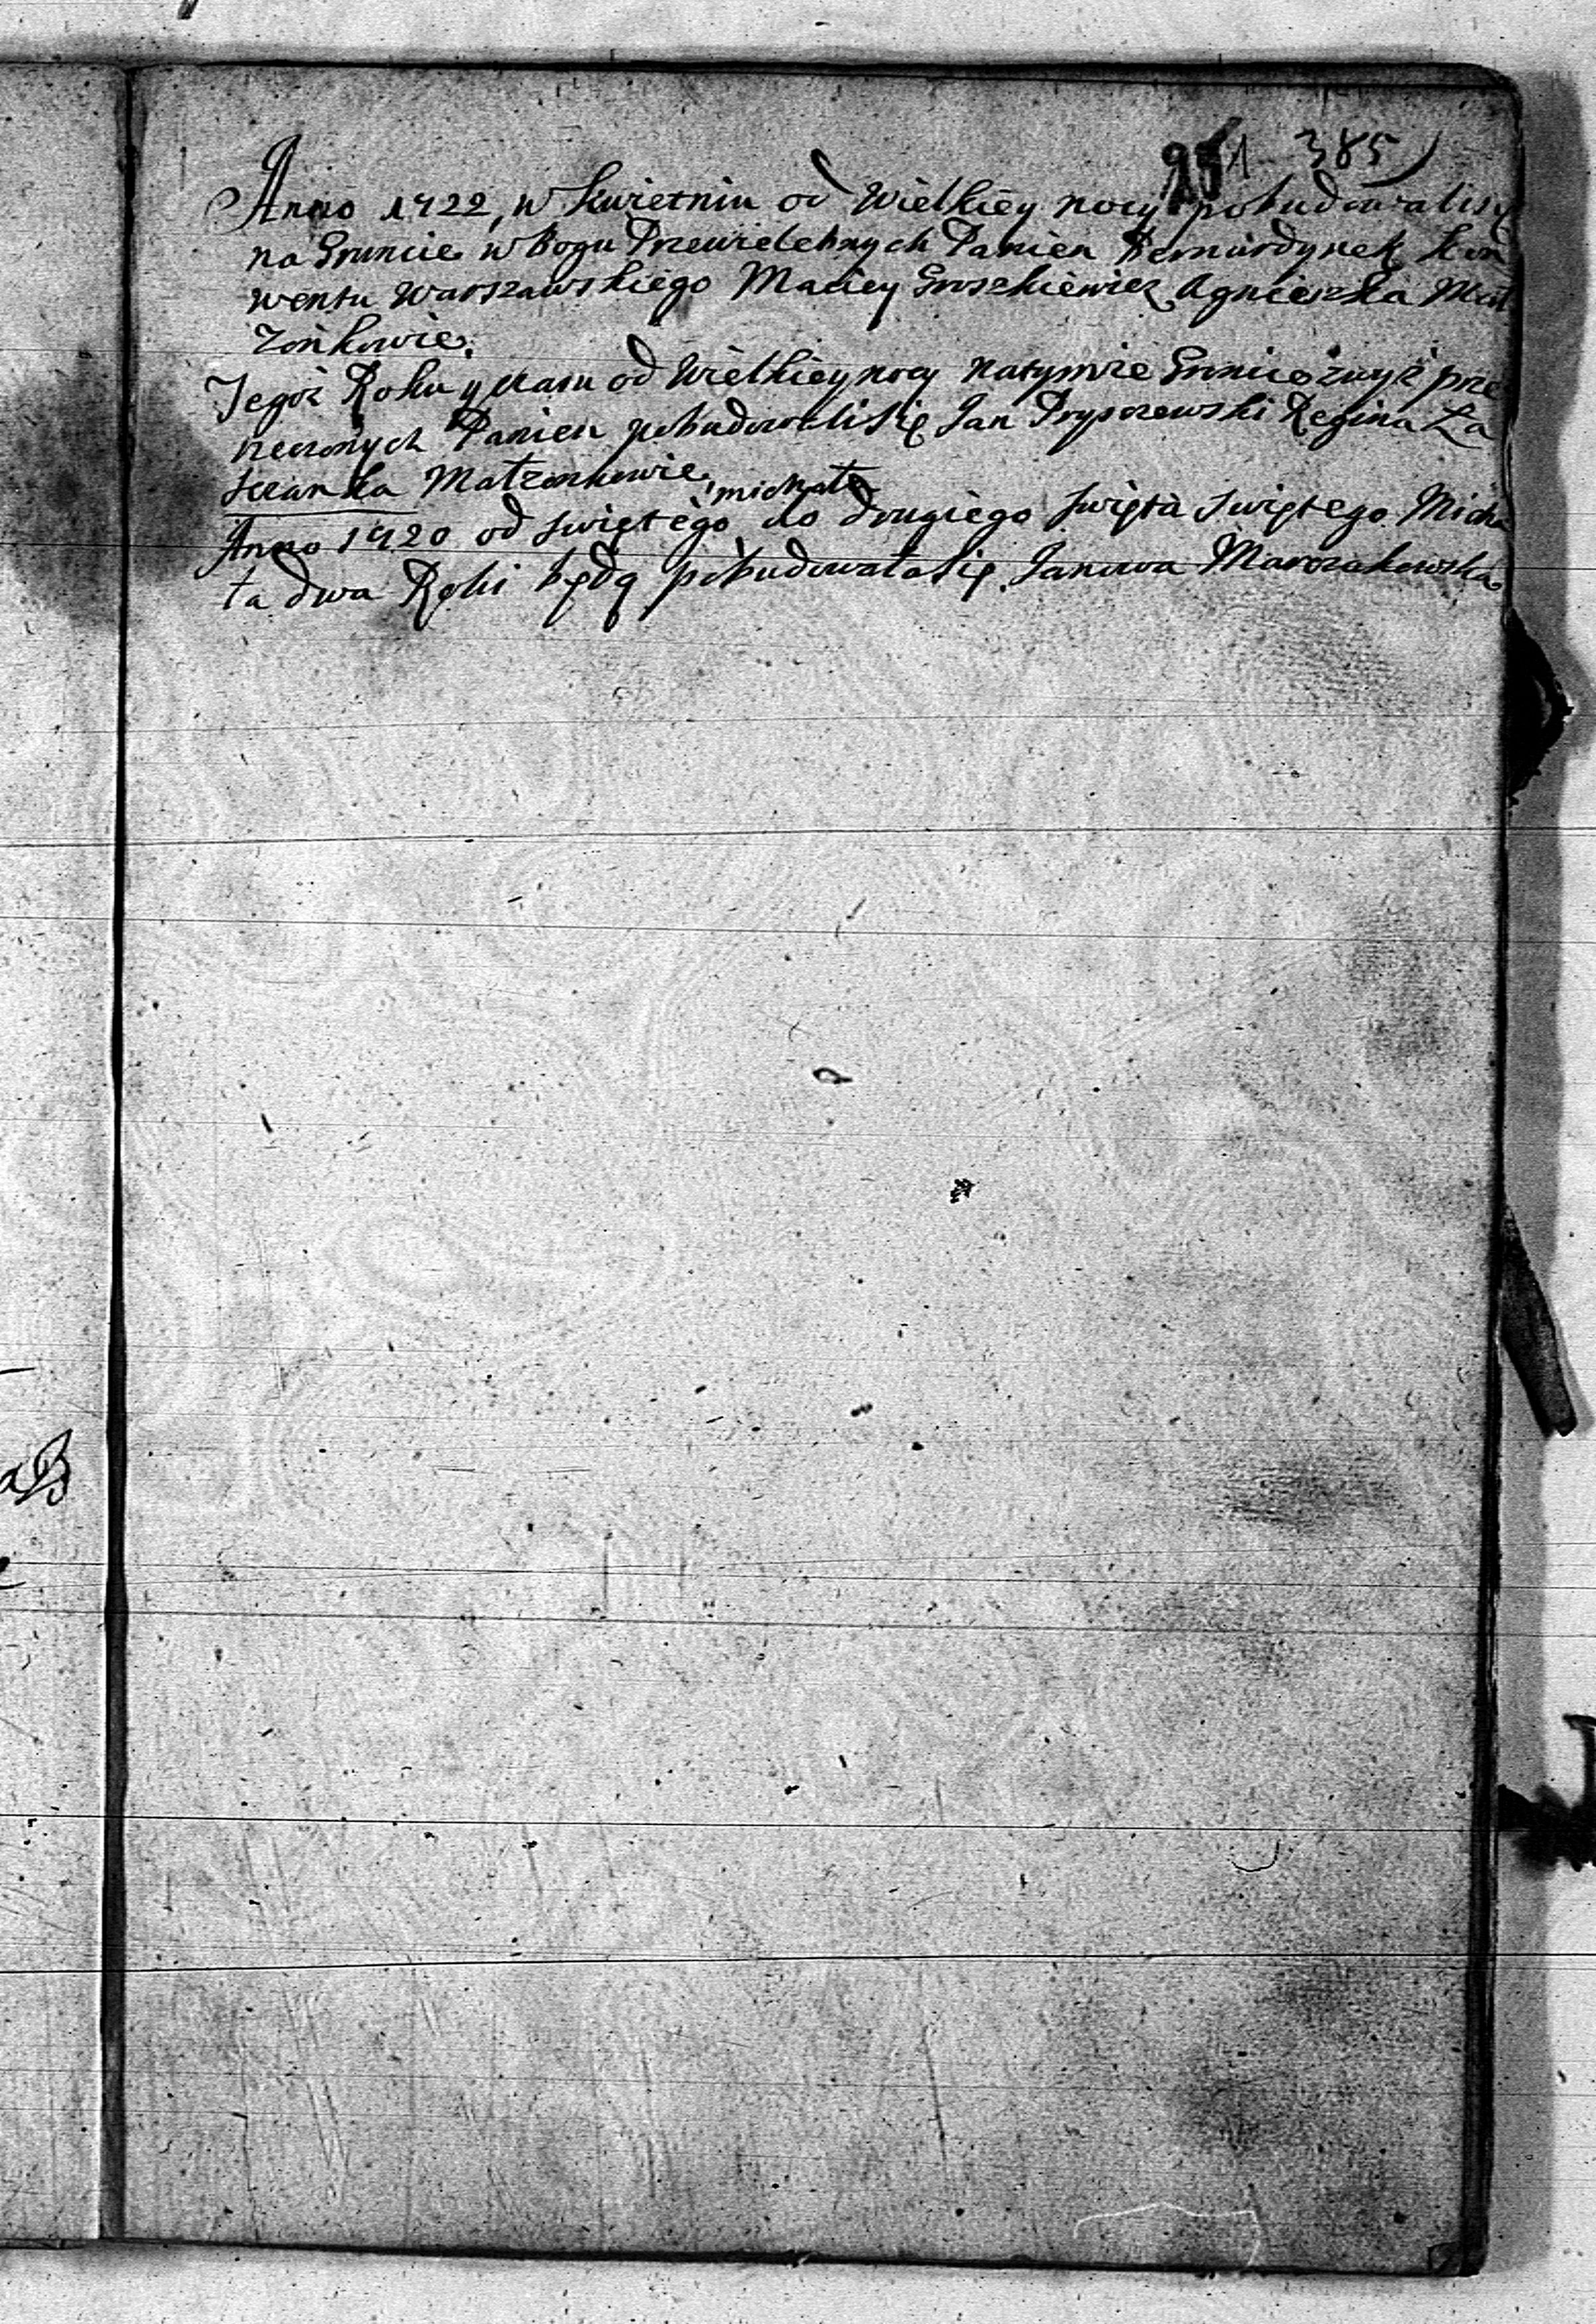 385
Anno 1722, w Kwietniu od Wielkiey nocy pobudowalisię
na Gruncie w Bogu Przewielebnych Panien Bernardynek Kon
wentu Warszawskiego Maciey Groszkiewicz Agnieszka Mał
żonkowie.
Tegoż Roku y czasu od Wielkieynocy natymże Gruncie zwyż prze
rzeczonych Panien pobudowalisię Jan Regina Ła
Małzonkowie
michała
Anno 1720 od swiętego do drugiego swięta swiętego Micha
ła dwa Roki będą pobudowałasię Janowa